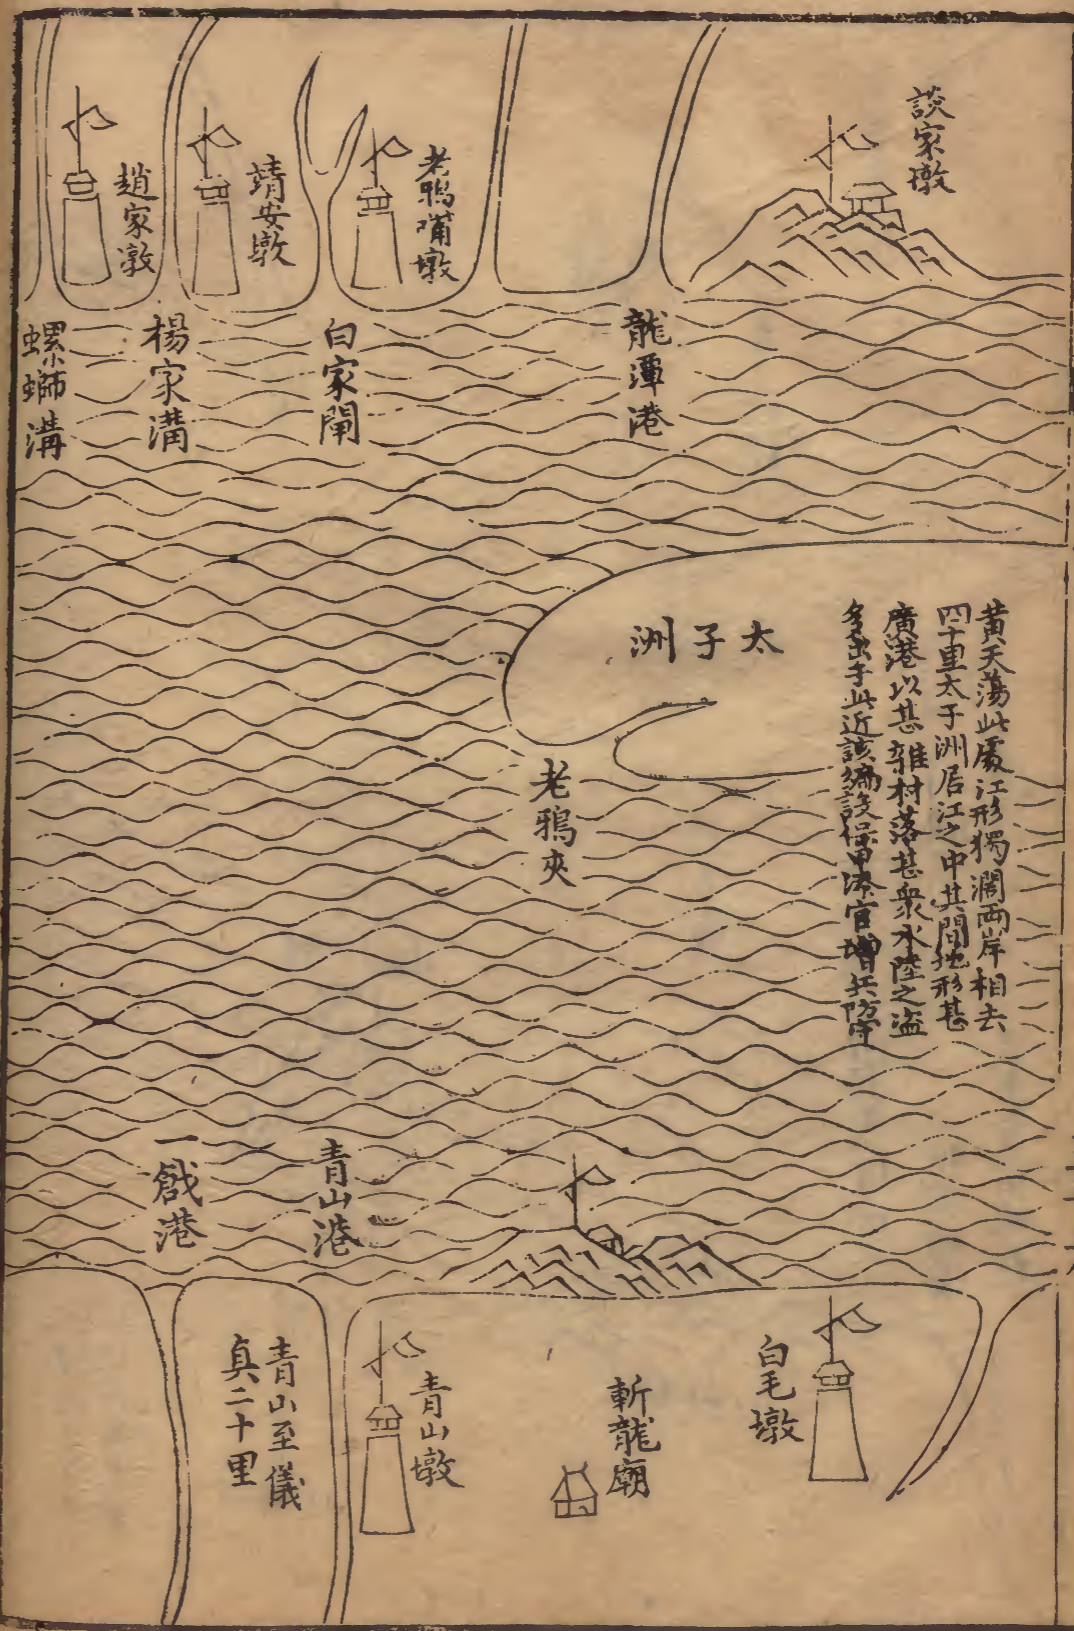 談家墩
老鴉嘴墩
靖安墩
趙家墩
龍潭港
白家閘
楊家溝
螺螄溝
黃天蕩此處江形獨濶兩岸相去
四十里太子洲居江之中其間地形甚
廣港以甚雜村落甚衆水陸之盗
多出于此近該編設保甲添官增兵防守
太子洲
老鴉夾
青山港
一戧港
白毛墩
斬龍廟
青山墩
青山至儀
真二十里